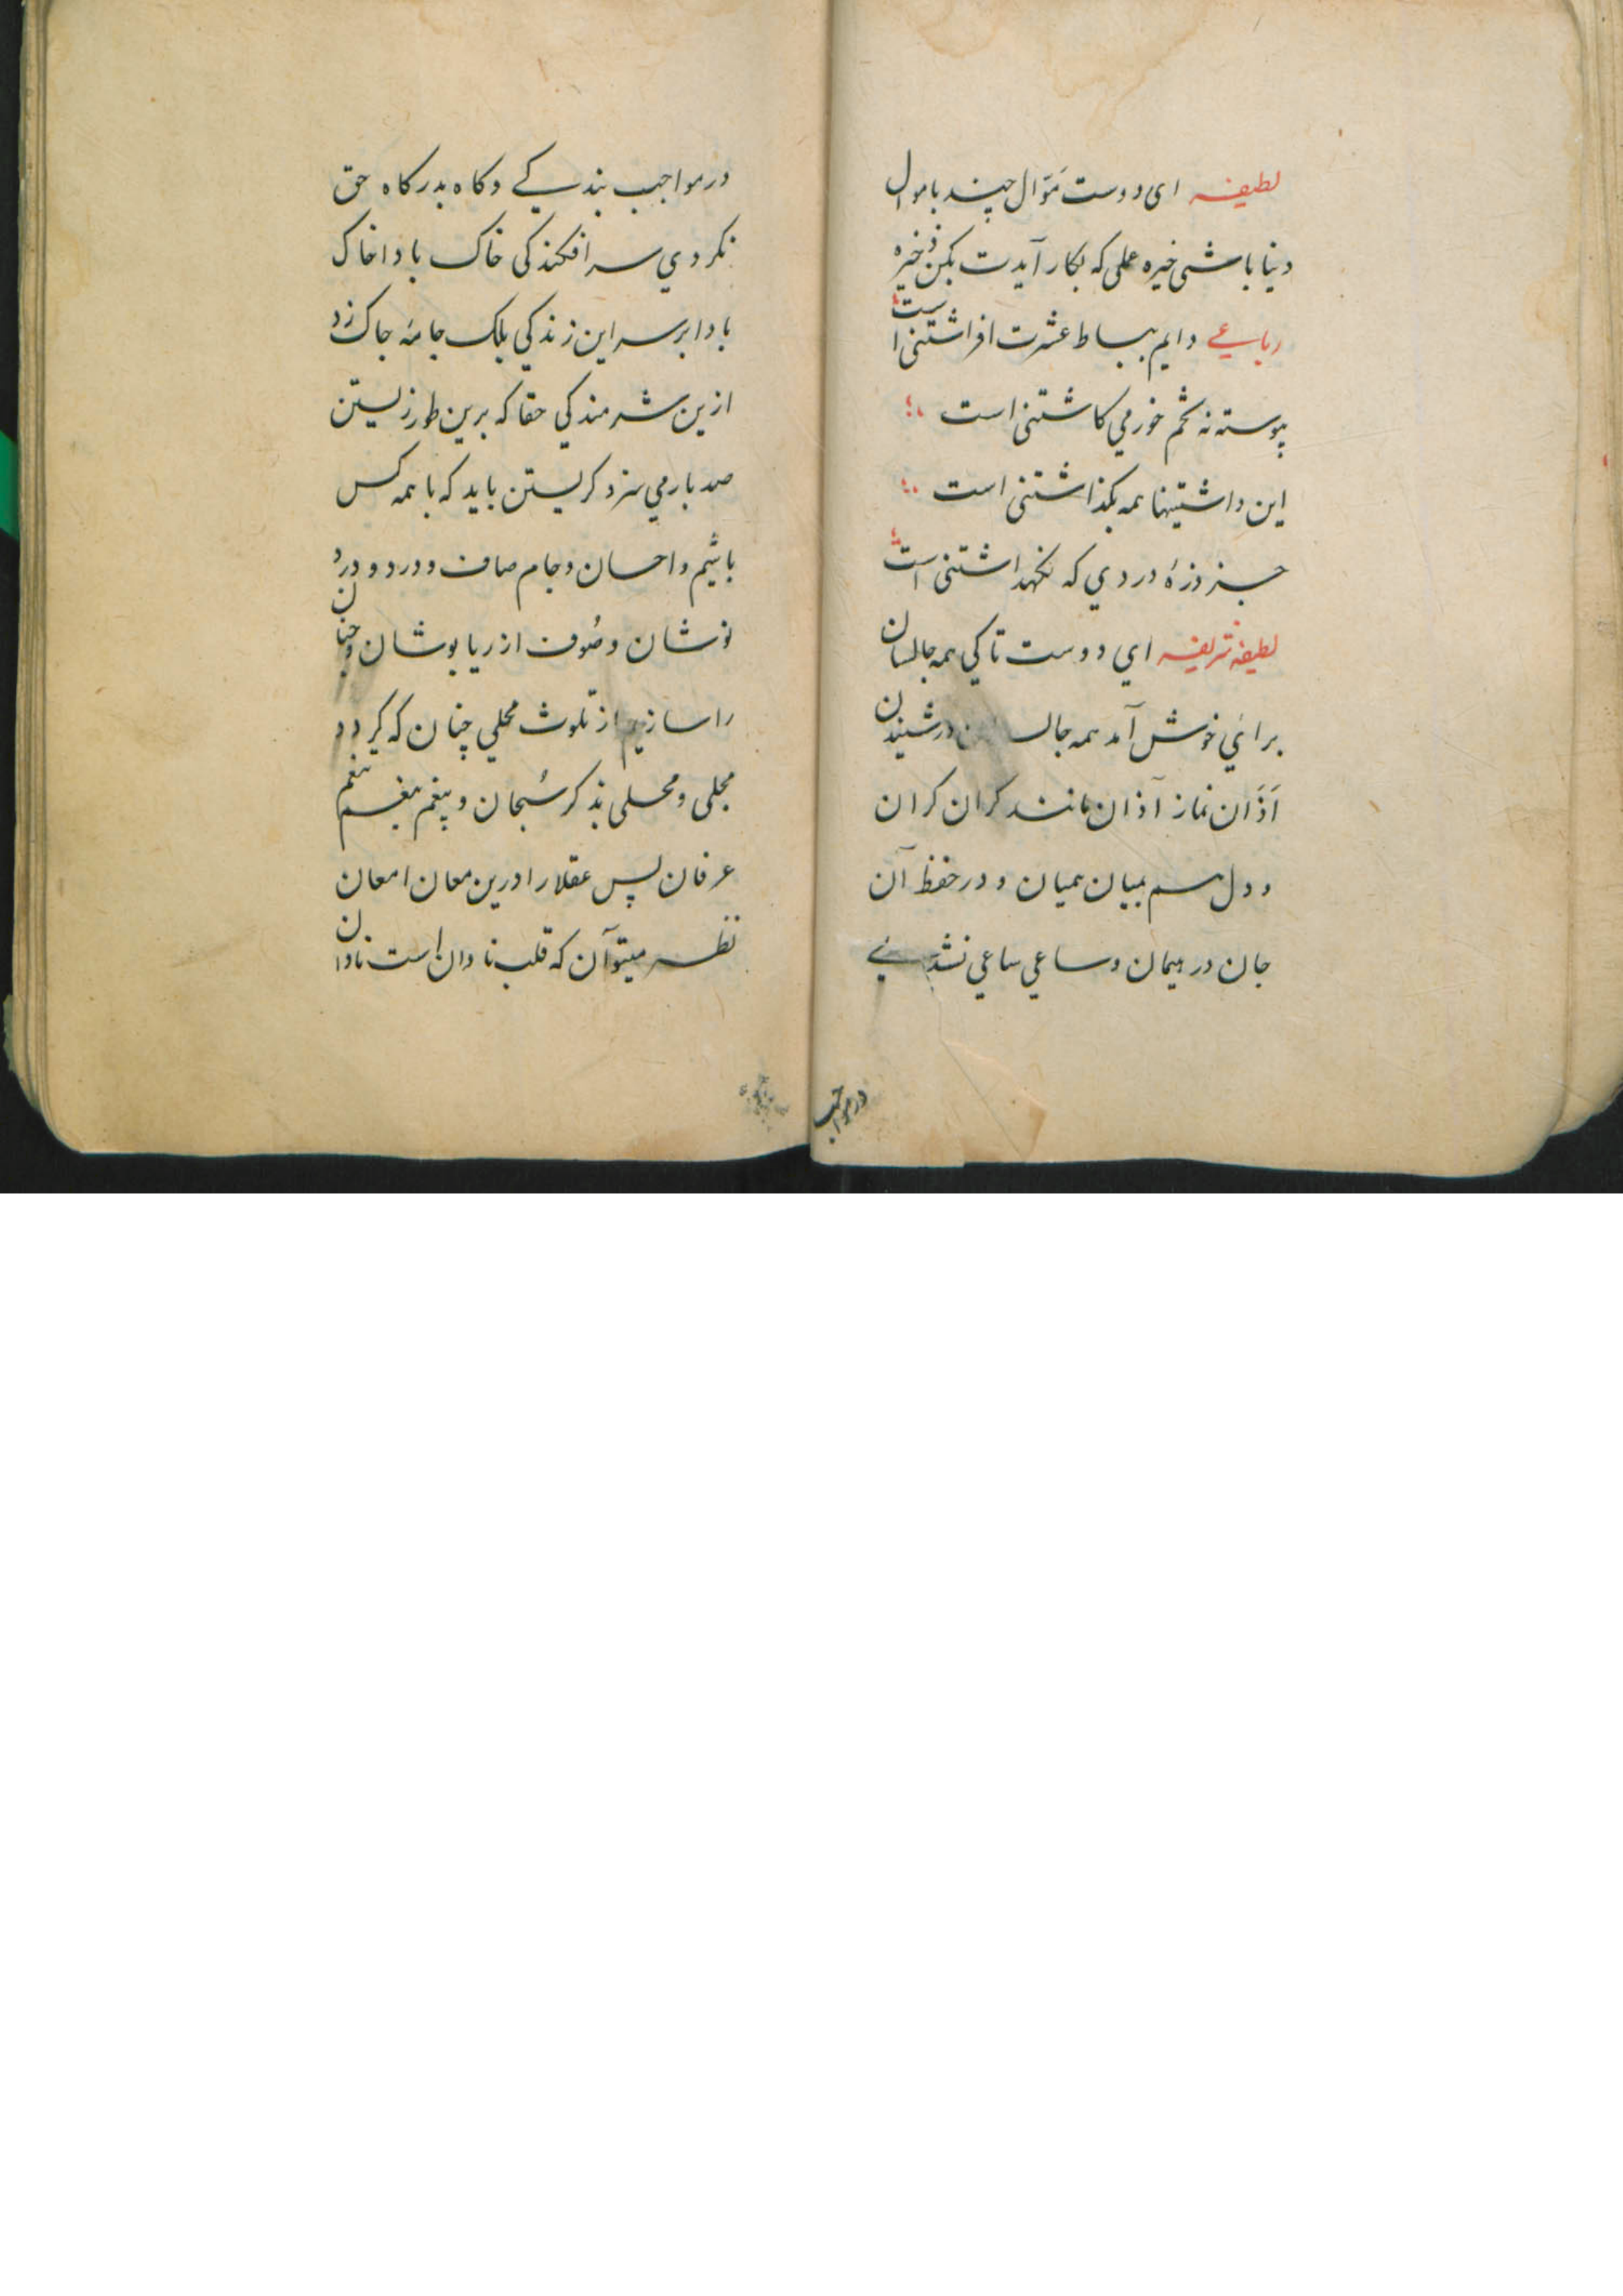 لطیفه ای دوست مَوّال چند باموال
دنیا باشی خیره عملی که بکار آیدت بکن ذخیره
رباعی دایم بساط عشرت افراشتنی است
پیوسته نه تخم خورمي کاشتنی است
این داشتیها همه بکذاشتنی است
جز ذرهٔ دردي که نکهداشتنی است
لطیفه شریفه اي دوست تا کي همه جا لسان
براي خوش آمد همه جا لسان درشنیدن
اَذَان نماز آذان مانند کران کران
و دل بسیم بمیان همیان و در حفظ آن
جان در هیمان و ساعي ساعي نشدي
درمواجب
در مواجب بندکے و کاه بدرکاه حق
نکردي سرافکندکی خاک بادا خاک
بادا بر سر این زندکي بلک جامهٔ چاک زد
ازین شرمندکي حقا که برین طور زیستن
صد بار مي سزد کریستن باید که با همه کس
باشیم و احسان و جام صاف و درد و درد
نوشان و صُوف از ریا پوشان و جنان
را سازیم از تلوث محلي چنان که کردد
مجلی و محلی بذکر سُبحان و بنغم نغم
عرفان پس عقلا را درین معان امعان
نظر میتوآن که قلب نادان است نادان